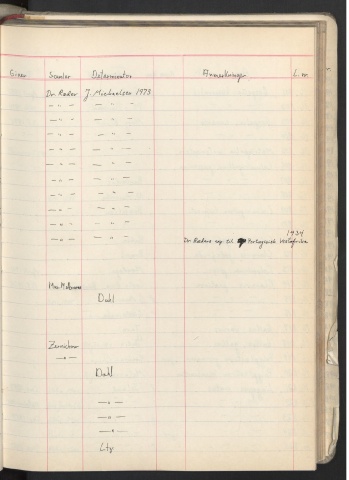 Giver Samler Determinator Anmerkninger L. nr.
Dr. Røder J. Michaelsen 1973
— " — — " —
— " — — " —
— " — — " —
— " — — " —
— " — — " —
— " — — " —
— " — — " —
— " — — " —
— " — — " —
— " — — " —
1934
Dr. Røders exp. til Portugisisk Vestafrika
Dahl
Zernichow
— " —
Dahl
— " —
— " —
— " —